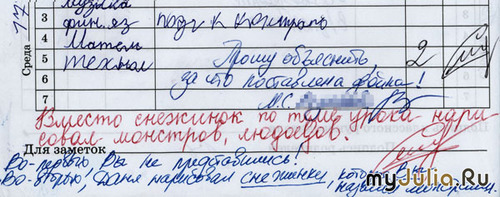 Музыка
3 фин. яз подг к контрол
4 Матем
5 технол Прошу объяснить, 2
6 за что поставлена двойка!
7 М.С.
Среда 17
Вместо снежинок по теме урока нари
совал монстров, людоедов.
Для заметок
Во-первых, Вы не представились!
Во-вторых, Даня нарисовал снежинки, которые Вы
назвали монстрами.
myJulia.Ru